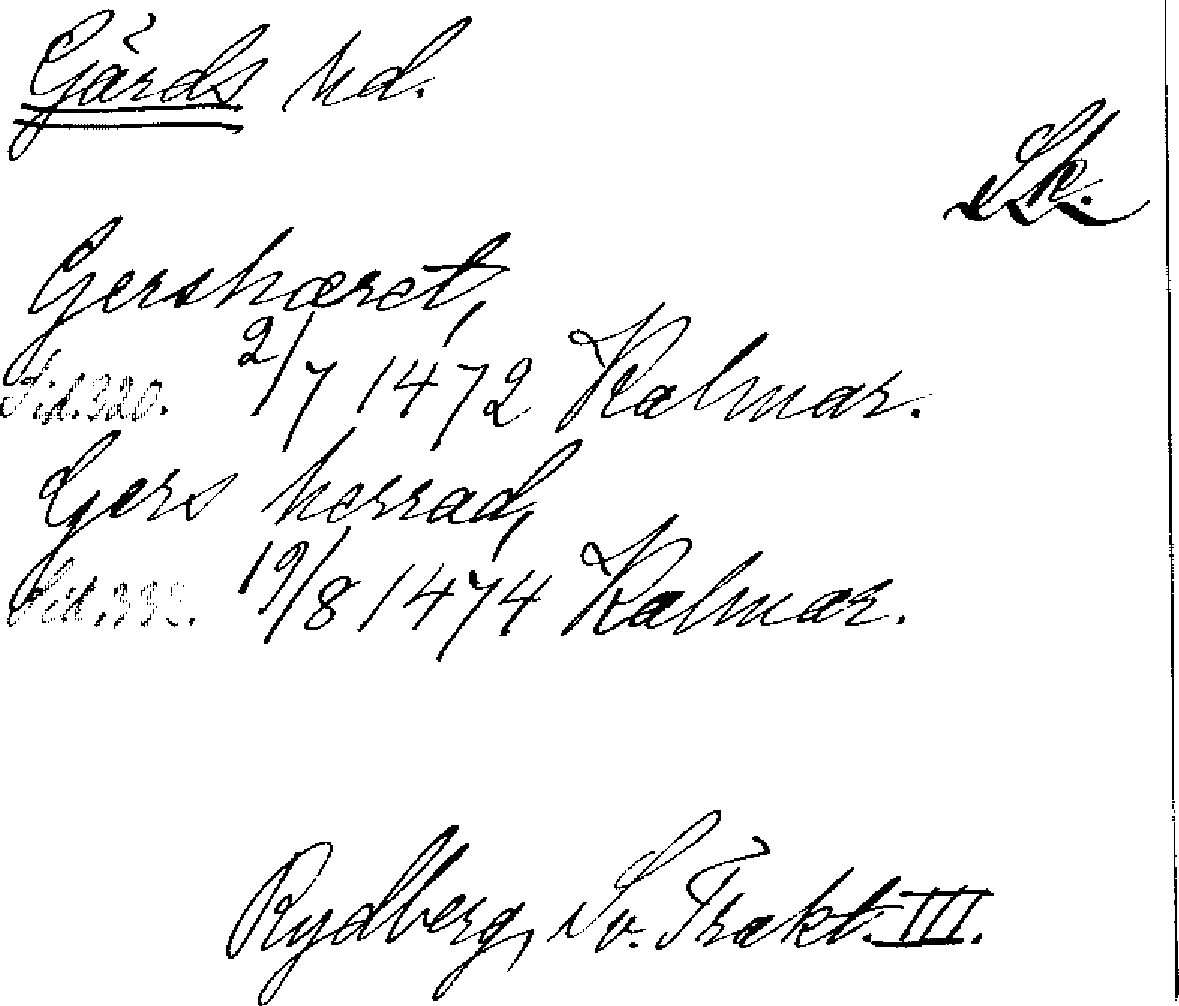 Gårds hd.
Sk.
Gershæret,
Sid. 320. 2/7 1472 Kalmar.
Gers herrad,
Sid. 332. 19/8 1474 Kalmar.
Rydberg, Sv. Trakt. III.